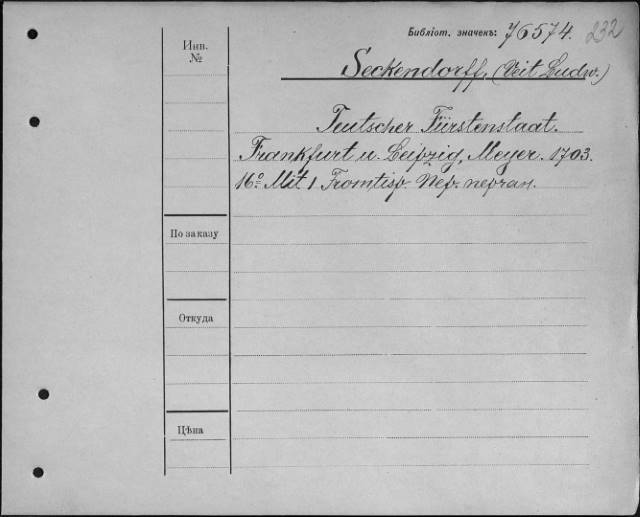 Библіот. значекъ: 76574. 232
Инв.
№
Seckendorff, (Veit Ludw.)
Teutscher Fürstenstaat.
Frankfurt u. Leipzig, Meyer. 1703.
16° Mit 1 Frontisp. Пер. пергам.
По заказу
Откуда
Цѣна